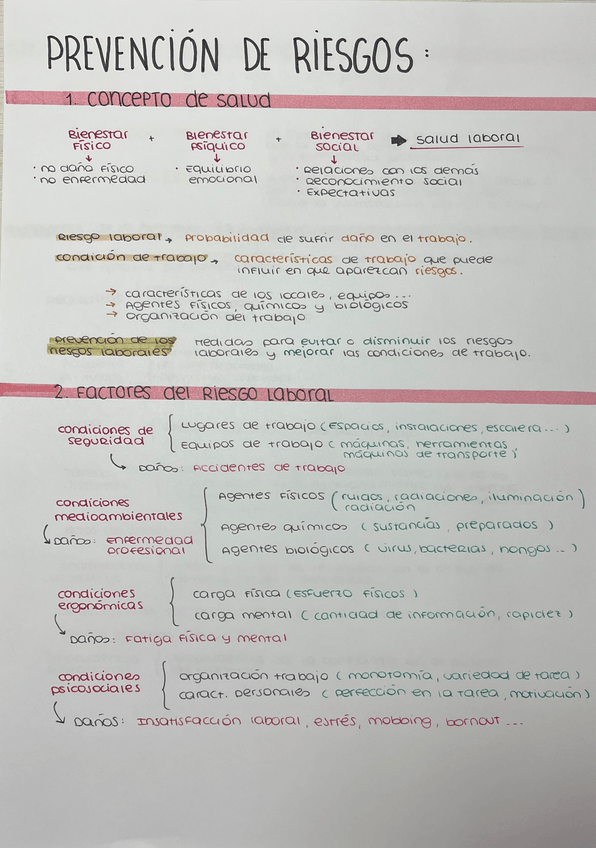 PREVENCIÓN DE RIESGOS:
1. Concepto de salud
Bienestar Físico + Bienestar psíquico + Bienestar social ➡ salud laboral
· no daño físico
· no enfermedad
· Equilibrio emocional
· Relaciones con los demás
· Reconocimiento social
· Expectativas
Riesgo laboral → Probabilidad de sufrir daño en el trabajo.
condición de trabajo → características de trabajo que puede
influir en que aparezcan riesgos.
→ características de los locales, equipos...
→ Agentes físicos, químicos y biológicos
→ organización del trabajo
prevención de los riesgos laborales
Medidas para evitar o disminuir los riesgos
laborales y mejorar las condiciones de trabajo.
2. Factores del Riesgo Laboral
condiciones de seguridad
Lugares de trabajo (espacios, instalaciones, escalera...)
Equipos de trabajo (máquinas, herramientas,
máquinas de transporte)
Daños: Accidentes de trabajo
condiciones medioambientales
Agentes físicos (ruidos, radiaciones, iluminación)
radiación
Agentes químicos (sustancias, preparados)
Agentes biológicos (virus, bacterias, hongos..)
Daños: enfermedad profesional
condiciones ergonómicas
carga física (Esfuerzo físicos)
carga mental (cantidad de información, rapidez)
Daños: Fatiga física y mental
condiciones psicosociales
organización trabajo (monotomía, variedad de tarea)
caract. personales (perfección en la tarea, motivación)
Daños: Insatisfacción laboral, estrés, mobbing, bornout...